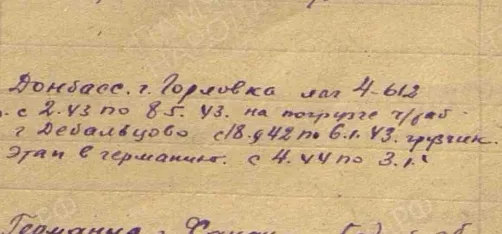 Донбасс. г. Горловка лаг 4-612
с 2.43 по 8 5. 43. на погрузке ч/раб
г Дебальцово с 18.9 42 по 6.1. 43. грузчик.
этап в германию. с 4.44 по 3.1.
Германия г.